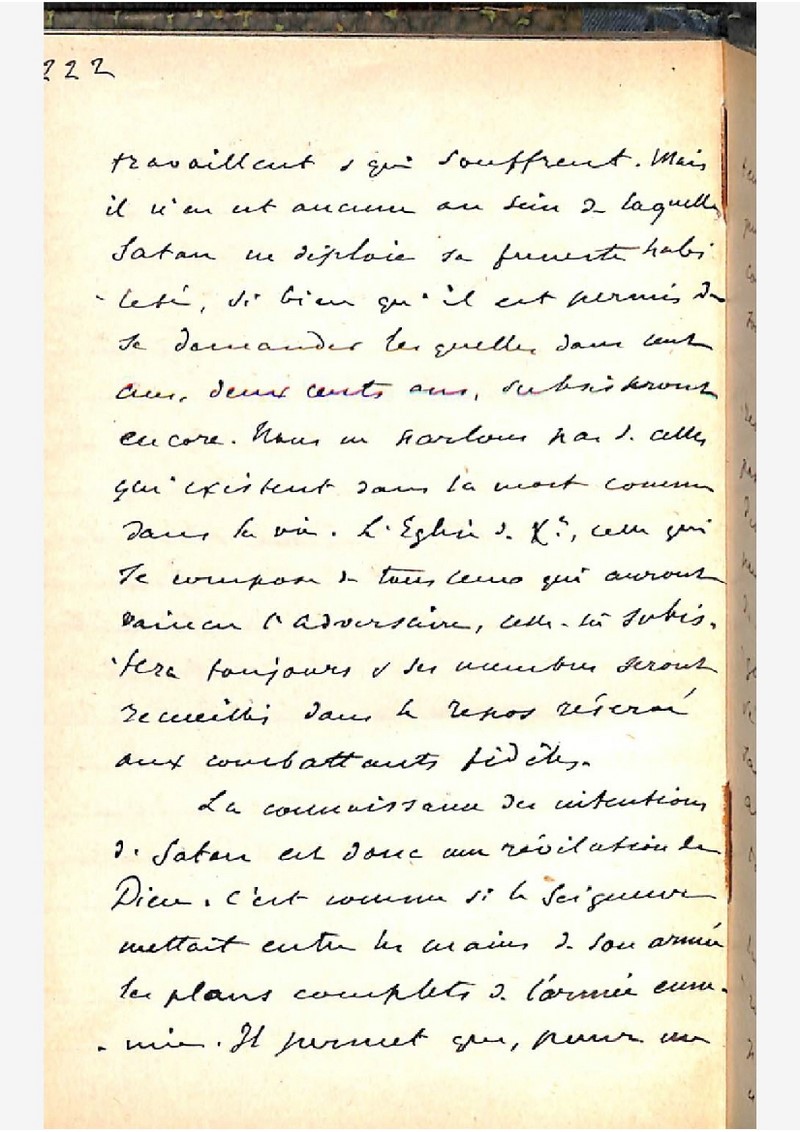 222
travaillent & qui souffrent. Mais
il n'en est aucune au sein de laquelle
Satan ne déploie sa funeste habi
-leté, si bien qu'il est permis de
se demander lesquelles dans cent
ans, deux cents ans, subsisteront
encore. Nous ne parlons pas de celles
qui existent dans la mort comme
dans la vie. L'Eglise de Xt, celle qui
se compose de tous ceux qui auront
vaincu l'adversaire, celle-là subsis-
-tera toujours & ses membres seront
recueillis dans le repos réservé
aux combattants fidèles.
La connaissance des intentions
de Satan est donc une révélation de
Dieu. C'est comme si le Seigneur
mettait entre les mains de son armée
les plans complets de l'armée enne-
-mie. Il permet que, pour un